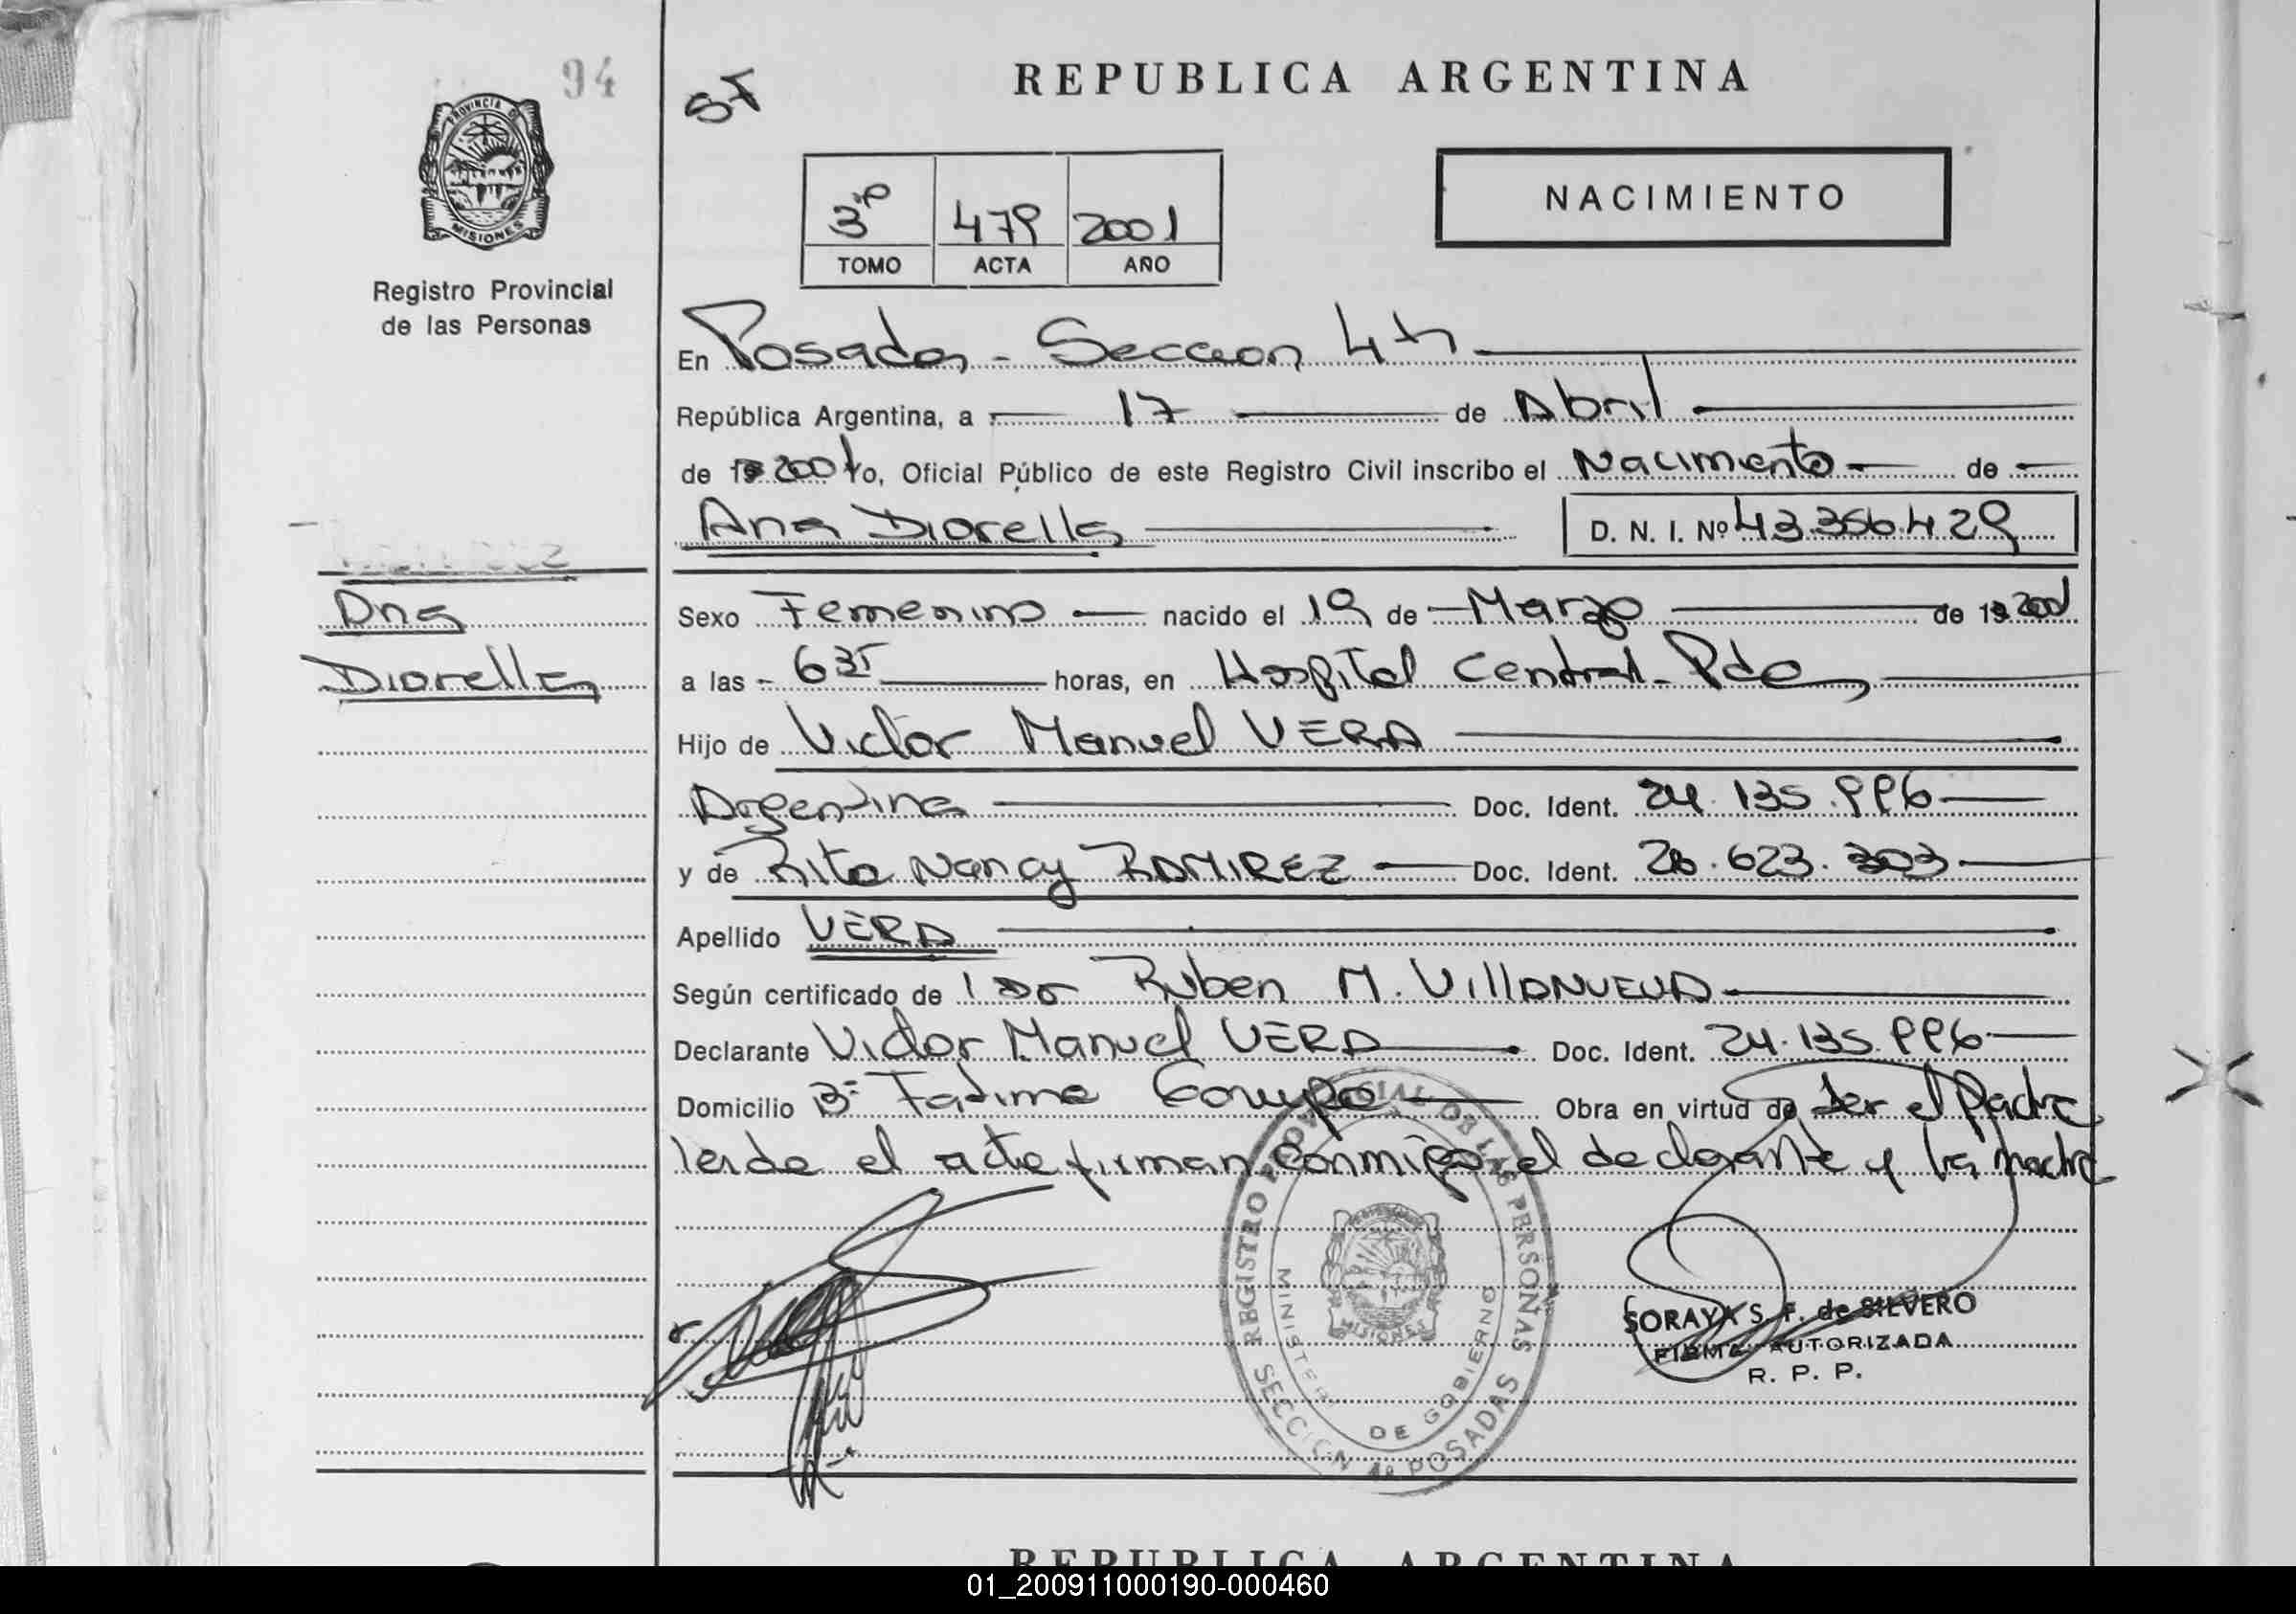 94
REPUBLICA ARGENTINA
PROVINCIA DE
MISIONES
Registro Provincial
de las Personas
3º 479 2001
TOMO ACTA AÑO
NACIMIENTO
En Posadas - Seccion 4ta
República Argentina, a 17 de Abril
de 19 2001 Yo, Oficial Público de este Registro Civil inscribo el Nacimiento de
Ana Diorella D. N. I. Nº 43.356.429
Ana
Diorella
Sexo Femenino nacido el 19 de Marzo de 19 2001
a las 635 horas, en Hospital Central - Pdas
Hijo de Victor Manuel VERA
Argentina Doc. Ident. 24.135.996
y de Rita Nancy RAMIREZ Doc. Ident. 26.623.303
Apellido VERA
Según certificado de Dr Ruben M. VillANUEVA
Declarante Victor Manuel VERA Doc. Ident. 24.135.996
Domicilio Bº Fatima Garupa Obra en virtud de Ser el Padre
leida el acta firman conmigo el declarante y la madre
REGISTRO PROVINCIAL DE LAS PERSONAS
MINISTERIO DE GOBIERNO
SECCION 4a POSADAS
SORAYA S. F. de SILVERO
FIRMA AUTORIZADA
R. P. P.
REPUBLICA ARGENTINA
01_200911000190-000460